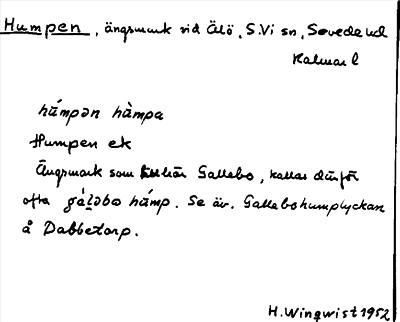 Humpen, ängsmark vid Älö, S.Vi sn, Sevede hd
Kalmar l
húmpən hàmpa
Humpen ek
Ängsmark som tillhör Gallebo, kallas därför
ofta gáləbo húmp. Se äv. Gallebohumplyckan
å Dabbetorp.
H. Wingwist 1952